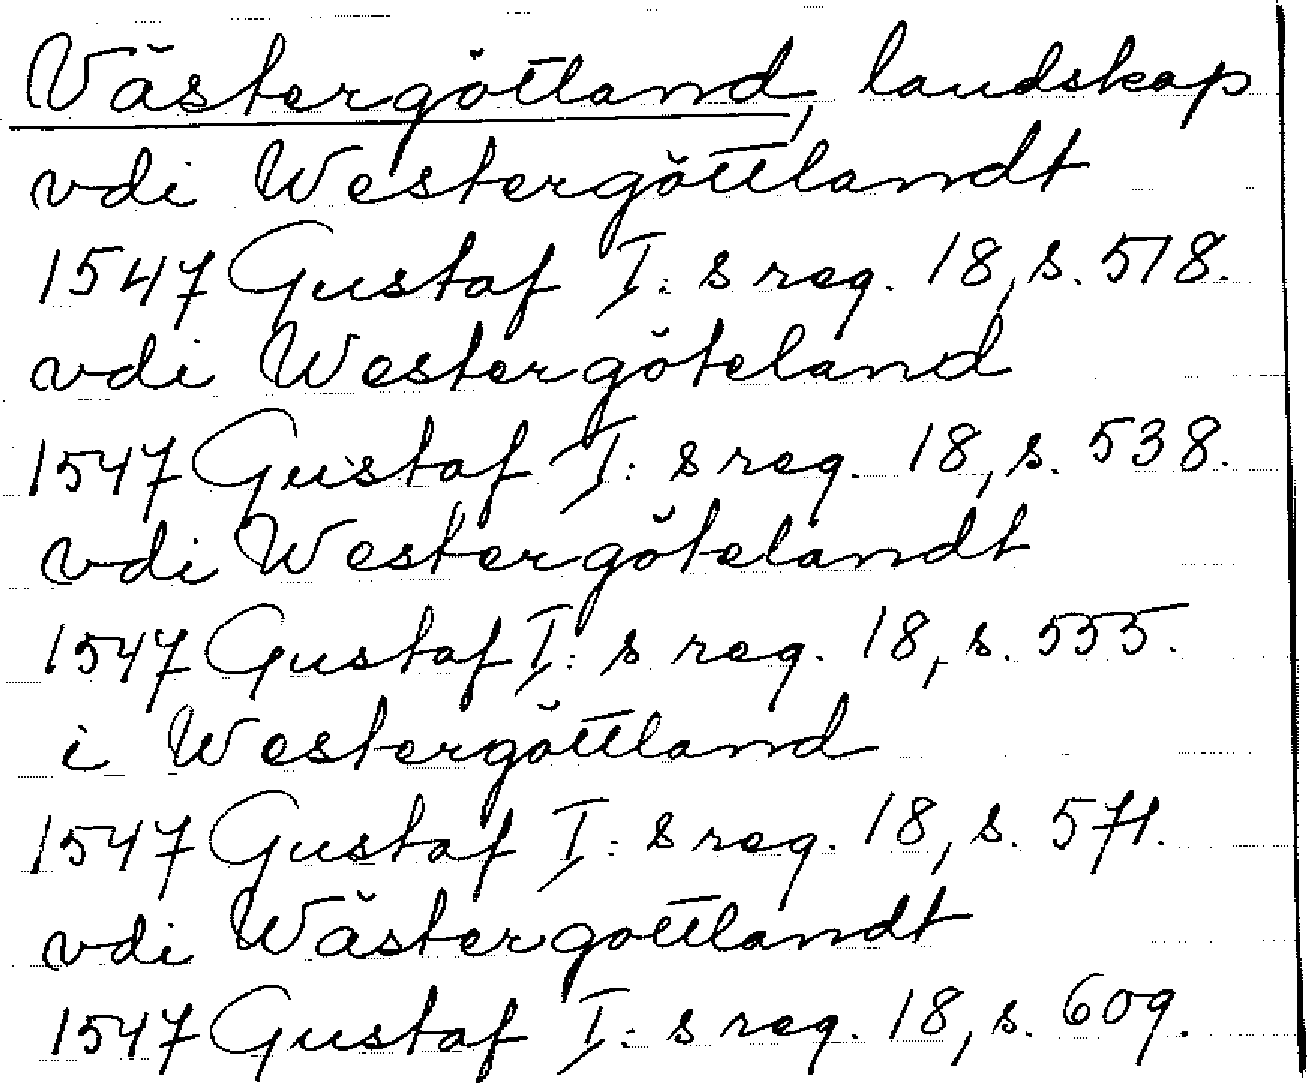 Västergötland, landskap
vdi Westergöttlandt
1547 Gustaf I:s reg. 18, s. 518.
vdi Westergöteland
1547 Gustaf I:s reg. 18, s. 538.
vdi Westergötelandt
1547 Gustaf I:s reg. 18, s. 555.
i Westergöttland
1547 Gustaf I:s reg. 18, s. 571.
vdi Wästergottlandt
1547 Gustaf I:s reg. 18, s. 609.